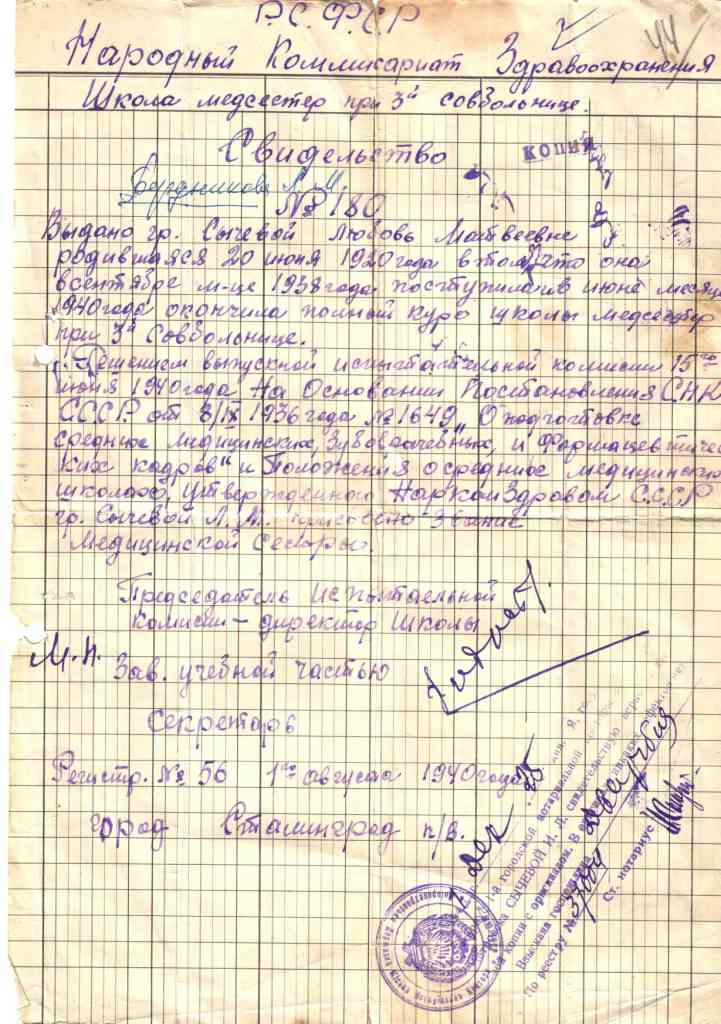 Р.С.Ф.С.Р
44
Народный Коммикариат Здравоохранения
Школа медсестер при 3й совбольнице.
Свидельство
КОПИЯ
Бурдникова Л. М.
№ 180
Выдано гр. Сычевой Любовь Матвеевне
родившаяся 20 июня 1920 года в том, что она
в сентябре м-це 1938 года поступила и в июне месяце
1940 года окончила полный курс школы медсестер
при 3й Совбольнице.
Решением выпускной испытательной комисии 15го
июня 1940 года На Основании Постановления СНК
СССР от 8/IX 1936 года № 1649 „О подготовке
средние медицинских, зубоврачебных, и фармацевтичес
ких кадров“ и Положения о средние медицинских
школах, утвержденного Наркомздравом СССР
гр. Сычевой Л.М. присвоено звание
Медицинской Сестры.
Председатель Испытаельной
комисии – директор Школы
М.П. Зав. учебной частью
Секретарь
Регистр. № 56 1го августа 1940 года
город Сталинград п/в.
25 дек
городской нотариальной
СЫЧЕВОЙ И. Л. свидетельствую верность
копии с оригиналом. В
Взыскана госпошлина
По реестру № 37004
Ст. нотариус